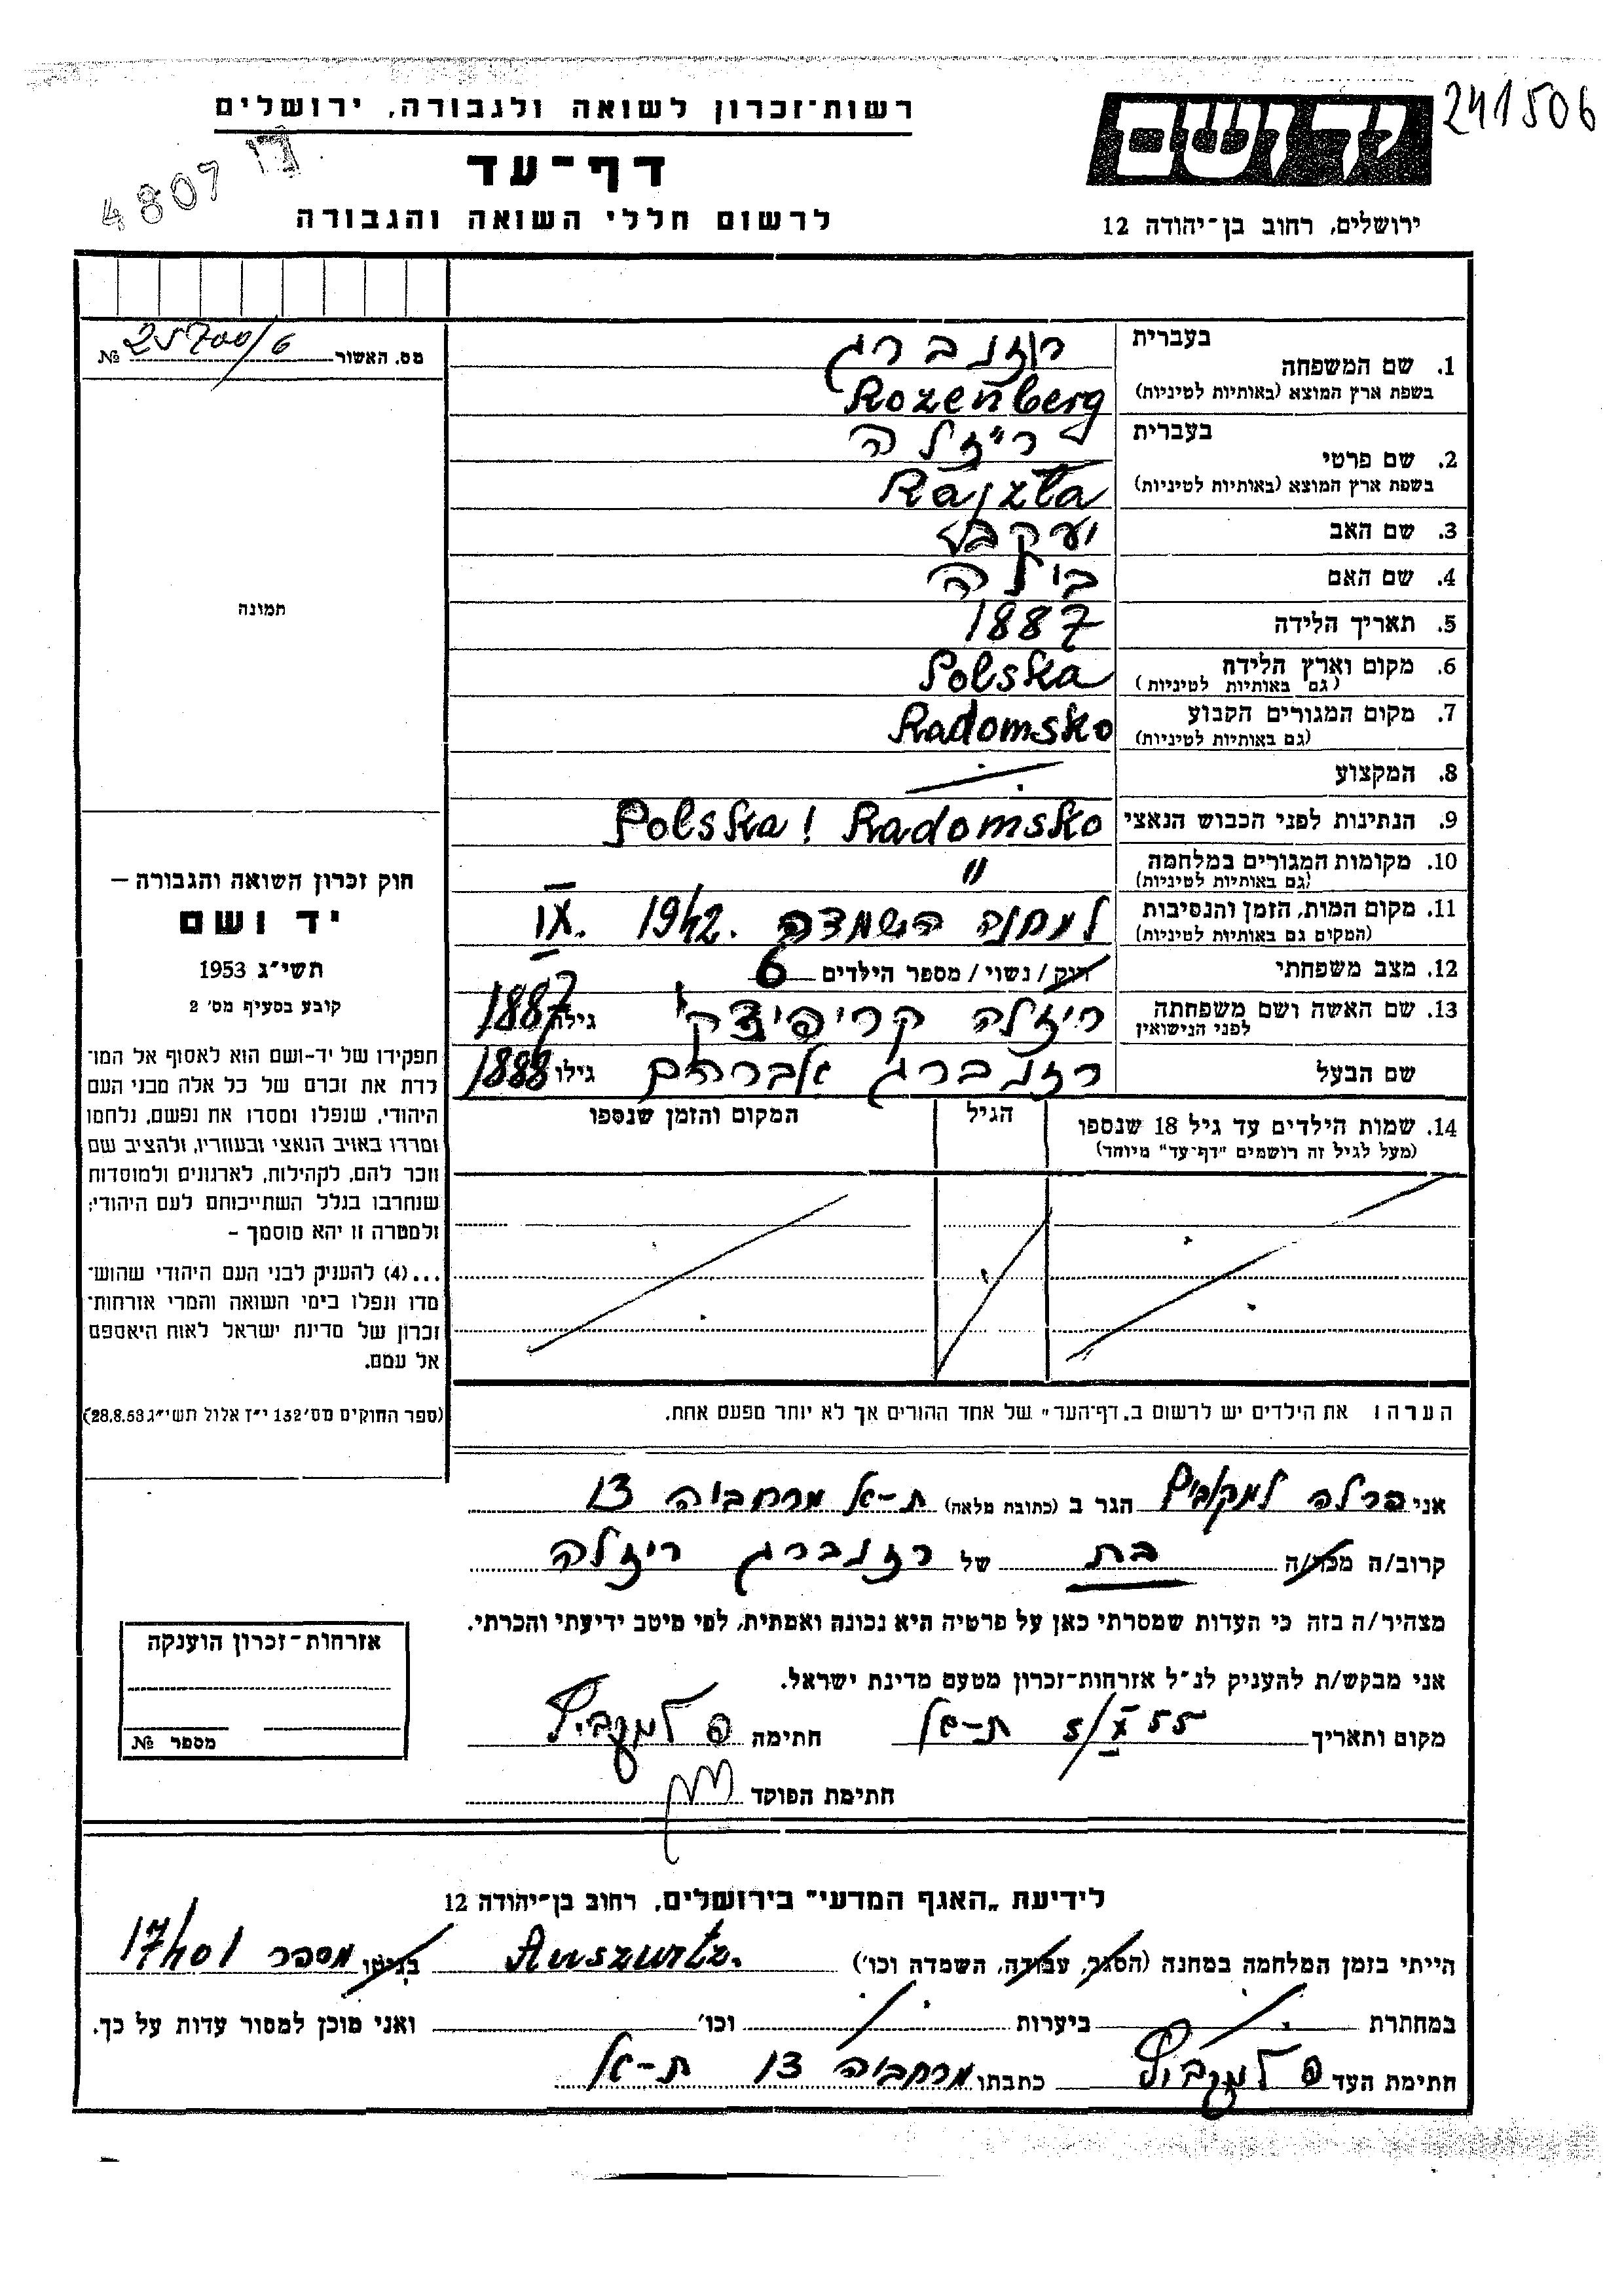 241506
יד ושם
רשות־זכרון לשואה ולגבורה, ירושלים
דף־עד
4807
לרשום חללי השואה והגבורה
ירושלים, רחוב בן־יהודה 12
מס. האשור 25700/6 №
1. שם המשפחה
בעברית
רוזנברג
בשפת ארץ המוצא (באותיות לטיניות)
Rozenberg
2. שם פרטי
בעברית
רייזלה
בשפת ארץ המוצא (באותיות לטיניות)
Rajzla
3. שם האב יעקב
4. שם האם בילה
5. תאריך הלידה 1887
6. מקום וארץ הלידה Polska
(גם באותיות לטיניות)
7. מקום המגורים הקבוע Radomsko
(גם באותיות לטיניות)
8. המקצוע
9. הנתינות לפני הכבוש הנאצי Polska! Radomsko
10. מקומות המגורים במלחמה "
(גם באותיות לטיניות)
11. מקום המות, הזמן והנסיבות למחנה השמדה 1942. IX.
(המקום גם באותיות לטיניות)
12. מצב משפחתי רוק / נשוי / מספר הילדים 6
13. שם האשה ושם משפחתה ריזלה גילה 1887
לפני הנישואין
שם הבעל רזנברג אברהם גילו 1888
14. שמות הילדים עד גיל 18 שנספו הגיל המקום והזמן שנספו
(מעל לגיל זה רושמים "דף־עד" מיוחד)
הערה: את הילדים יש לרשום ב„דף־העד" של אחד ההורים אך לא יותר מפעם אחת.
תמונה
חוק זכרון השואה והגבורה —
יד ושם
תשי״ג 1953
קובע בסעיף מס' 2
תפקידו של יד-ושם הוא לאסוף אל המו־
לדת את זכרם של כל אלה מבני העם
היהודי, שנפלו ומסרו את נפשם, נלחמו
ומרדו באויב הנאצי ובעוזריו, ולהציב שם
וזכר להם, לקהילות, לארגונים ולמוסדות
שנחרבו בגלל השתייכותם לעם היהודי;
ולמטרה זו יהא מוסמך –
...(4) להעניק לבני העם היהודי שהוש־
מדו ונפלו בימי השואה והמרי אזרחות־
זכרון של מדינת ישראל לאות היאספם
אל עמם.
(ספר החוקים מס' 132 י״ז אלול תשי״ג 28.8.53)
אני פרלה הגר ב (כתובת מלאה) ת-א מרחביה 13
קרוב/ה מכר/ה בת של רזנברג ריזלה
מצהיר/ה בזה כי העדות שמסרתי כאן על פרטיה היא נכונה ואמתית, לפי מיטב ידיעתי והכרתי.
אני מבקש/ת להעניק לנ״ל אזרחות־זכרון מטעם מדינת ישראל.
מקום ותאריך 5/X 55 ת-א חתימה
חתימת הפוקד
אזרחות־זכרון הוענקה
מספר №
לידיעת „האגף המדעי" בירושלים, רחוב בן־יהודה 12
הייתי בזמן המלחמה במחנה (הסגר, עבודה, השמדה וכו') Auszwitz. בגיטו מספר 17401
במחתרת ביערות וכו' ואני מוכן למסור עדות על כך.
חתימת העד כתבתו מרחביה 13 ת-א